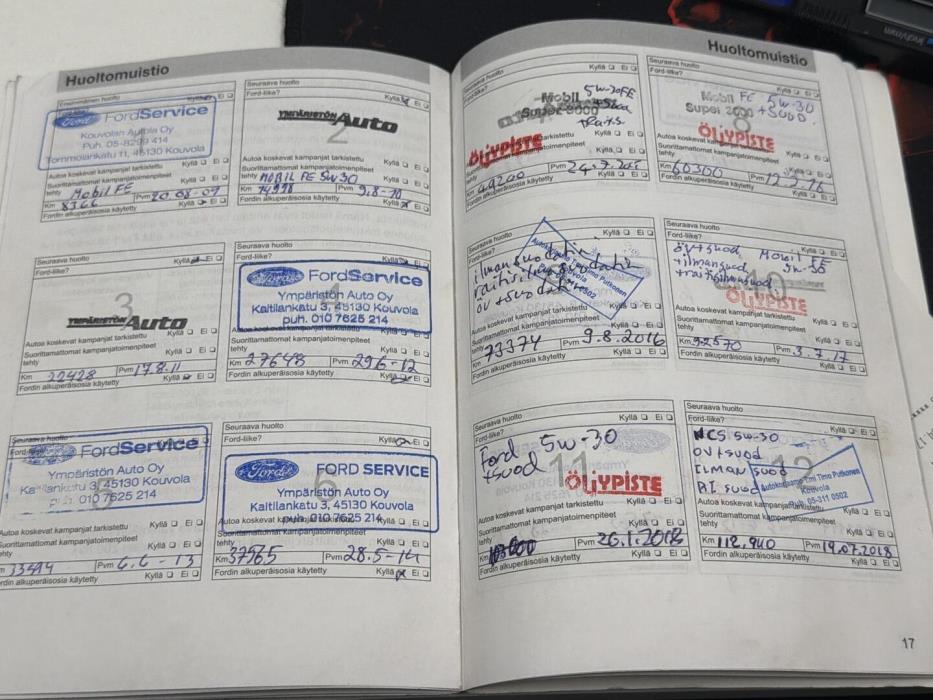 Huoltomuistio
Ensimmäinen huolto
Kyllä Ei
Ford FordService
Kouvolan Autola Oy
Puh. 05-8299 414
Tommolankatu 11, 45130 Kouvola
Autoa koskevat kampanjat tarkistettu Kyllä Ei
Suorittamattomat kampanjatoimenpiteet
tehty Mobil FE Kyllä Ei
Km 8366 Pvm 20.08-09
Fordin alkuperäisosia käytetty Kyllä Ei
Seuraava huolto
Ford-liike? Kyllä Ei
2
YMPÄRISTÖN Auto
Autoa koskevat kampanjat tarkistettu Kyllä Ei
Suorittamattomat kampanjatoimenpiteet
tehty MOBIL FE 5W30 Kyllä Ei
Km 14998 Pvm 9.8-10
Fordin alkuperäisosia käytetty Kyllä Ei
Seuraava huolto
Ford-liike? Kyllä Ei
3
YMPÄRISTÖN Auto
Autoa koskevat kampanjat tarkistettu
Kyllä Ei
Suorittamattomat kampanjatoimenpiteet
tehty Kyllä Ei
Km 22428 Pvm 17.8.11
Fordin alkuperäisosia käytetty Kyllä Ei
Seuraava huolto
Ford-liike? Kyllä Ei
Ford FordService
Ympäristön Auto Oy
Kaitilankatu 3, 45130 Kouvola
puh. 010 7625 214
Autoa koskevat kampanjat tarkistettu
Kyllä Ei
Suorittamattomat kampanjatoimenpiteet
tehty Kyllä Ei
Km 27648 Pvm 29.6-12
Fordin alkuperäisosia käytetty
Seuraava huolto
Ford FordService
Ympäristön Auto Oy
Kaitilankatu 3, 45130 Kouvola
010 7625 214
Autoa koskevat kampanjat tarkistettu Kyllä Ei
Suorittamattomat kampanjatoimenpiteet
tehty Kyllä Ei
33594 Pvm 6.6-13
Fordin alkuperäisosia käytetty Kyllä Ei
Seuraava huolto
Ford-liike? Kyllä Ei
6
Ford FORD SERVICE
Ympäristön Auto Oy
Kaitilankatu 3, 45130 Kouvola
puh. 010 7625 214
Autoa koskevat kampanjat tarkistettu
Suorittamattomat kampanjatoimenpiteet
tehty Kyllä Ei
Km 37565 Pvm 28.5-14
Fordin alkuperäisosia käytetty Kyllä Ei
Huoltomuistio
Seuraava huolto
Ford-liike? Kyllä Ei
Mobil 5w-30FE
Super 3000
ÖLJYPISTE
tarkistettu
Kyllä Ei
Suorittamattomat kampanjatoimenpiteet
tehty Kyllä Ei
Km 49200 Pvm
Fordin alkuperäisosia käytetty Kyllä Ei
Seuraava huolto
Ford-liike? Kyllä Ei
Mobil FE 5w-30
Super +suod.
8
ÖLJYPISTE
Autoa koskevat kampanjat tarkistettu
Kyllä Ei
Suorittamattomat kampanjatoimenpiteet
tehty Kyllä Ei
Km 60300 Pvm
Fordin alkuperäisosia käytetty Kyllä Ei
Seuraava huolto
Ford-liike?
ilmansuodatin
öv + suodatin
Timo Putkonen
Kouvola
Autoa koskevat kampanjat tarkistettu
Kyllä Ei
Suorittamattomat kampanjatoimenpiteet
tehty
Km 73374 Pvm 9.8.2016
Fordin alkuperäisosia käytetty Kyllä Ei
Seuraava huolto
Ford-liike? Kyllä Ei
öv+suod Mobil FE
+ilmansuod 5w-30
+raitisilmansuod
10
ÖLJYPISTE
Autoa koskevat kampanjat tarkistettu
Kyllä Ei
Suorittamattomat kampanjatoimenpiteet
tehty Kyllä Ei
Km 92570 Pvm 3.7.17
Fordin alkuperäisosia käytetty Kyllä Ei
Seuraava huolto
Ford-liike? Kyllä Ei
Ford 5w-30
+suod
11
ÖLJYPISTE
Autoa koskevat kampanjat tarkistettu
Kyllä Ei
Suorittamattomat kampanjatoimenpiteet
tehty Kyllä Ei
Km Pvm 26.1.2018
Fordin alkuperäisosia käytetty Kyllä Ei
Seuraava huolto
Ford-liike? Kyllä Ei
5w-30
ÖV+suod
ILMAN suod
RI suod
12
Autokorjaamo Tmi Timo Putkonen
Kouvola
Puh. 05-311 0502
Autoa koskevat kampanjat tarkistettu
Kyllä Ei
Suorittamattomat kampanjatoimenpiteet
tehty Kyllä Ei
Km 112.940 Pvm 19.07.2018
Fordin alkuperäisosia käytetty Kyllä Ei
17